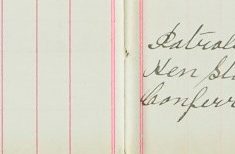 Patrol
Hen St
Conferr